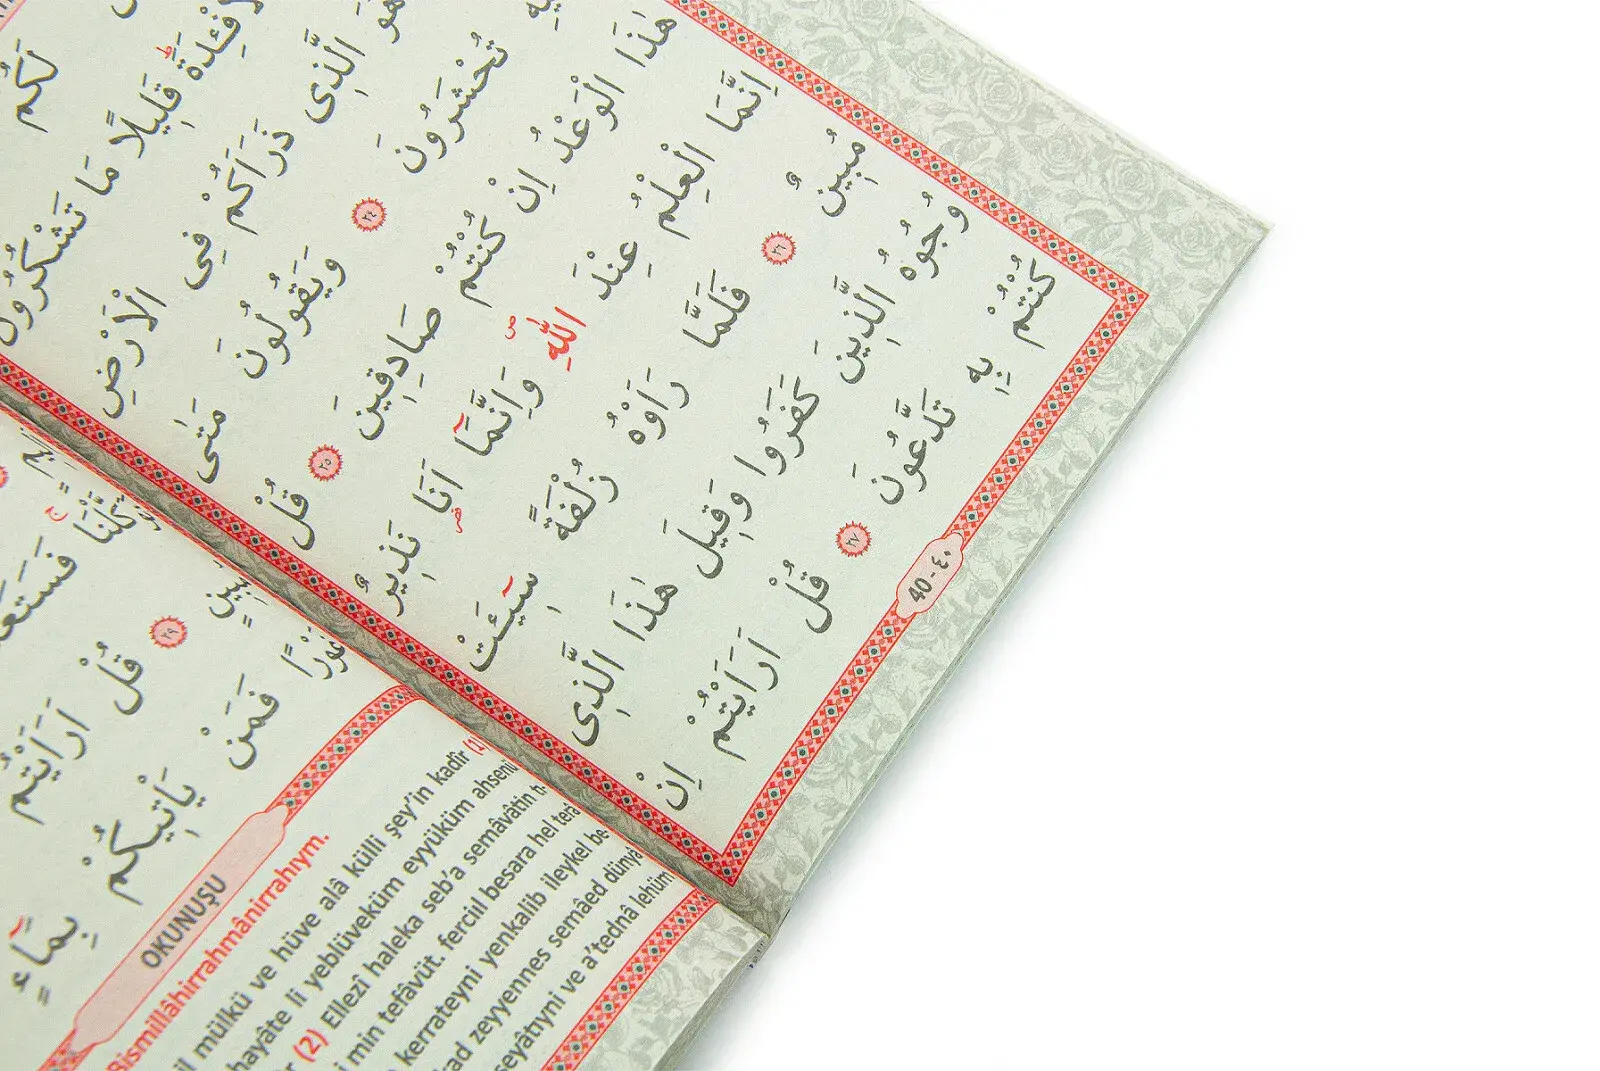 لَكُمُ
قَلِيلًا مَا تَشْكُرُونَ
هُوَ الَّذِى ذَرَاَكُمْ فِى الْاَرْضِ
تُحْشَرُونَ ٢٤ وَيَقُولُونَ مَتٰى
هٰذَا الْوَعْدُ اِنْ كُنْتُمْ صَادِقِينَ ٢٥ قُلْ
اِنَّمَا الْعِلْمُ عِنْدَ اللّٰهِ وَاِنَّمَٓا اَنَا نَذِيرٌ
مُبِينٌ ٢٦ فَلَمَّا رَاَوْهُ زُلْفَةً سِٓيـَٔتْ
وُجُوهُ الَّذِينَ كَفَرُوا وَقِيلَ هٰذَا الَّذِى
كُنْتُمْ بِهِ تَدَّعُونَ ٢٧ قُلْ اَرَاَيْتُمْ اِنْ
40 - ٤٠
٢٩ قُلْ اَرَاَيْتُمْ
فَمَنْ يَاْتِيكُمْ بِمَٓاءٍ
OKUNUŞU
Bismillâhirrahmânirrahıym.
mülkü ve hüve alâ külli şey'in kadîr (1)
hayâte li yeblüveküm eyyüküm ahsenü
(2) Ellezî haleka seb'a semâvâtin
min tefâvüt. ferciıl besara hel terâ
kerrateyni yenkalib ileykel
zeyyennes semâed dünyâ
ve a'tednâ lehüm